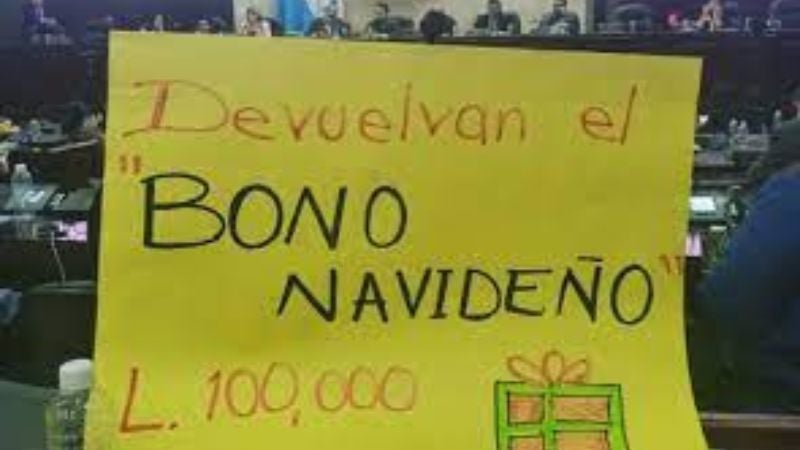 Devuelvan el
"BONO
NAVIDEÑO"
L. 100,000